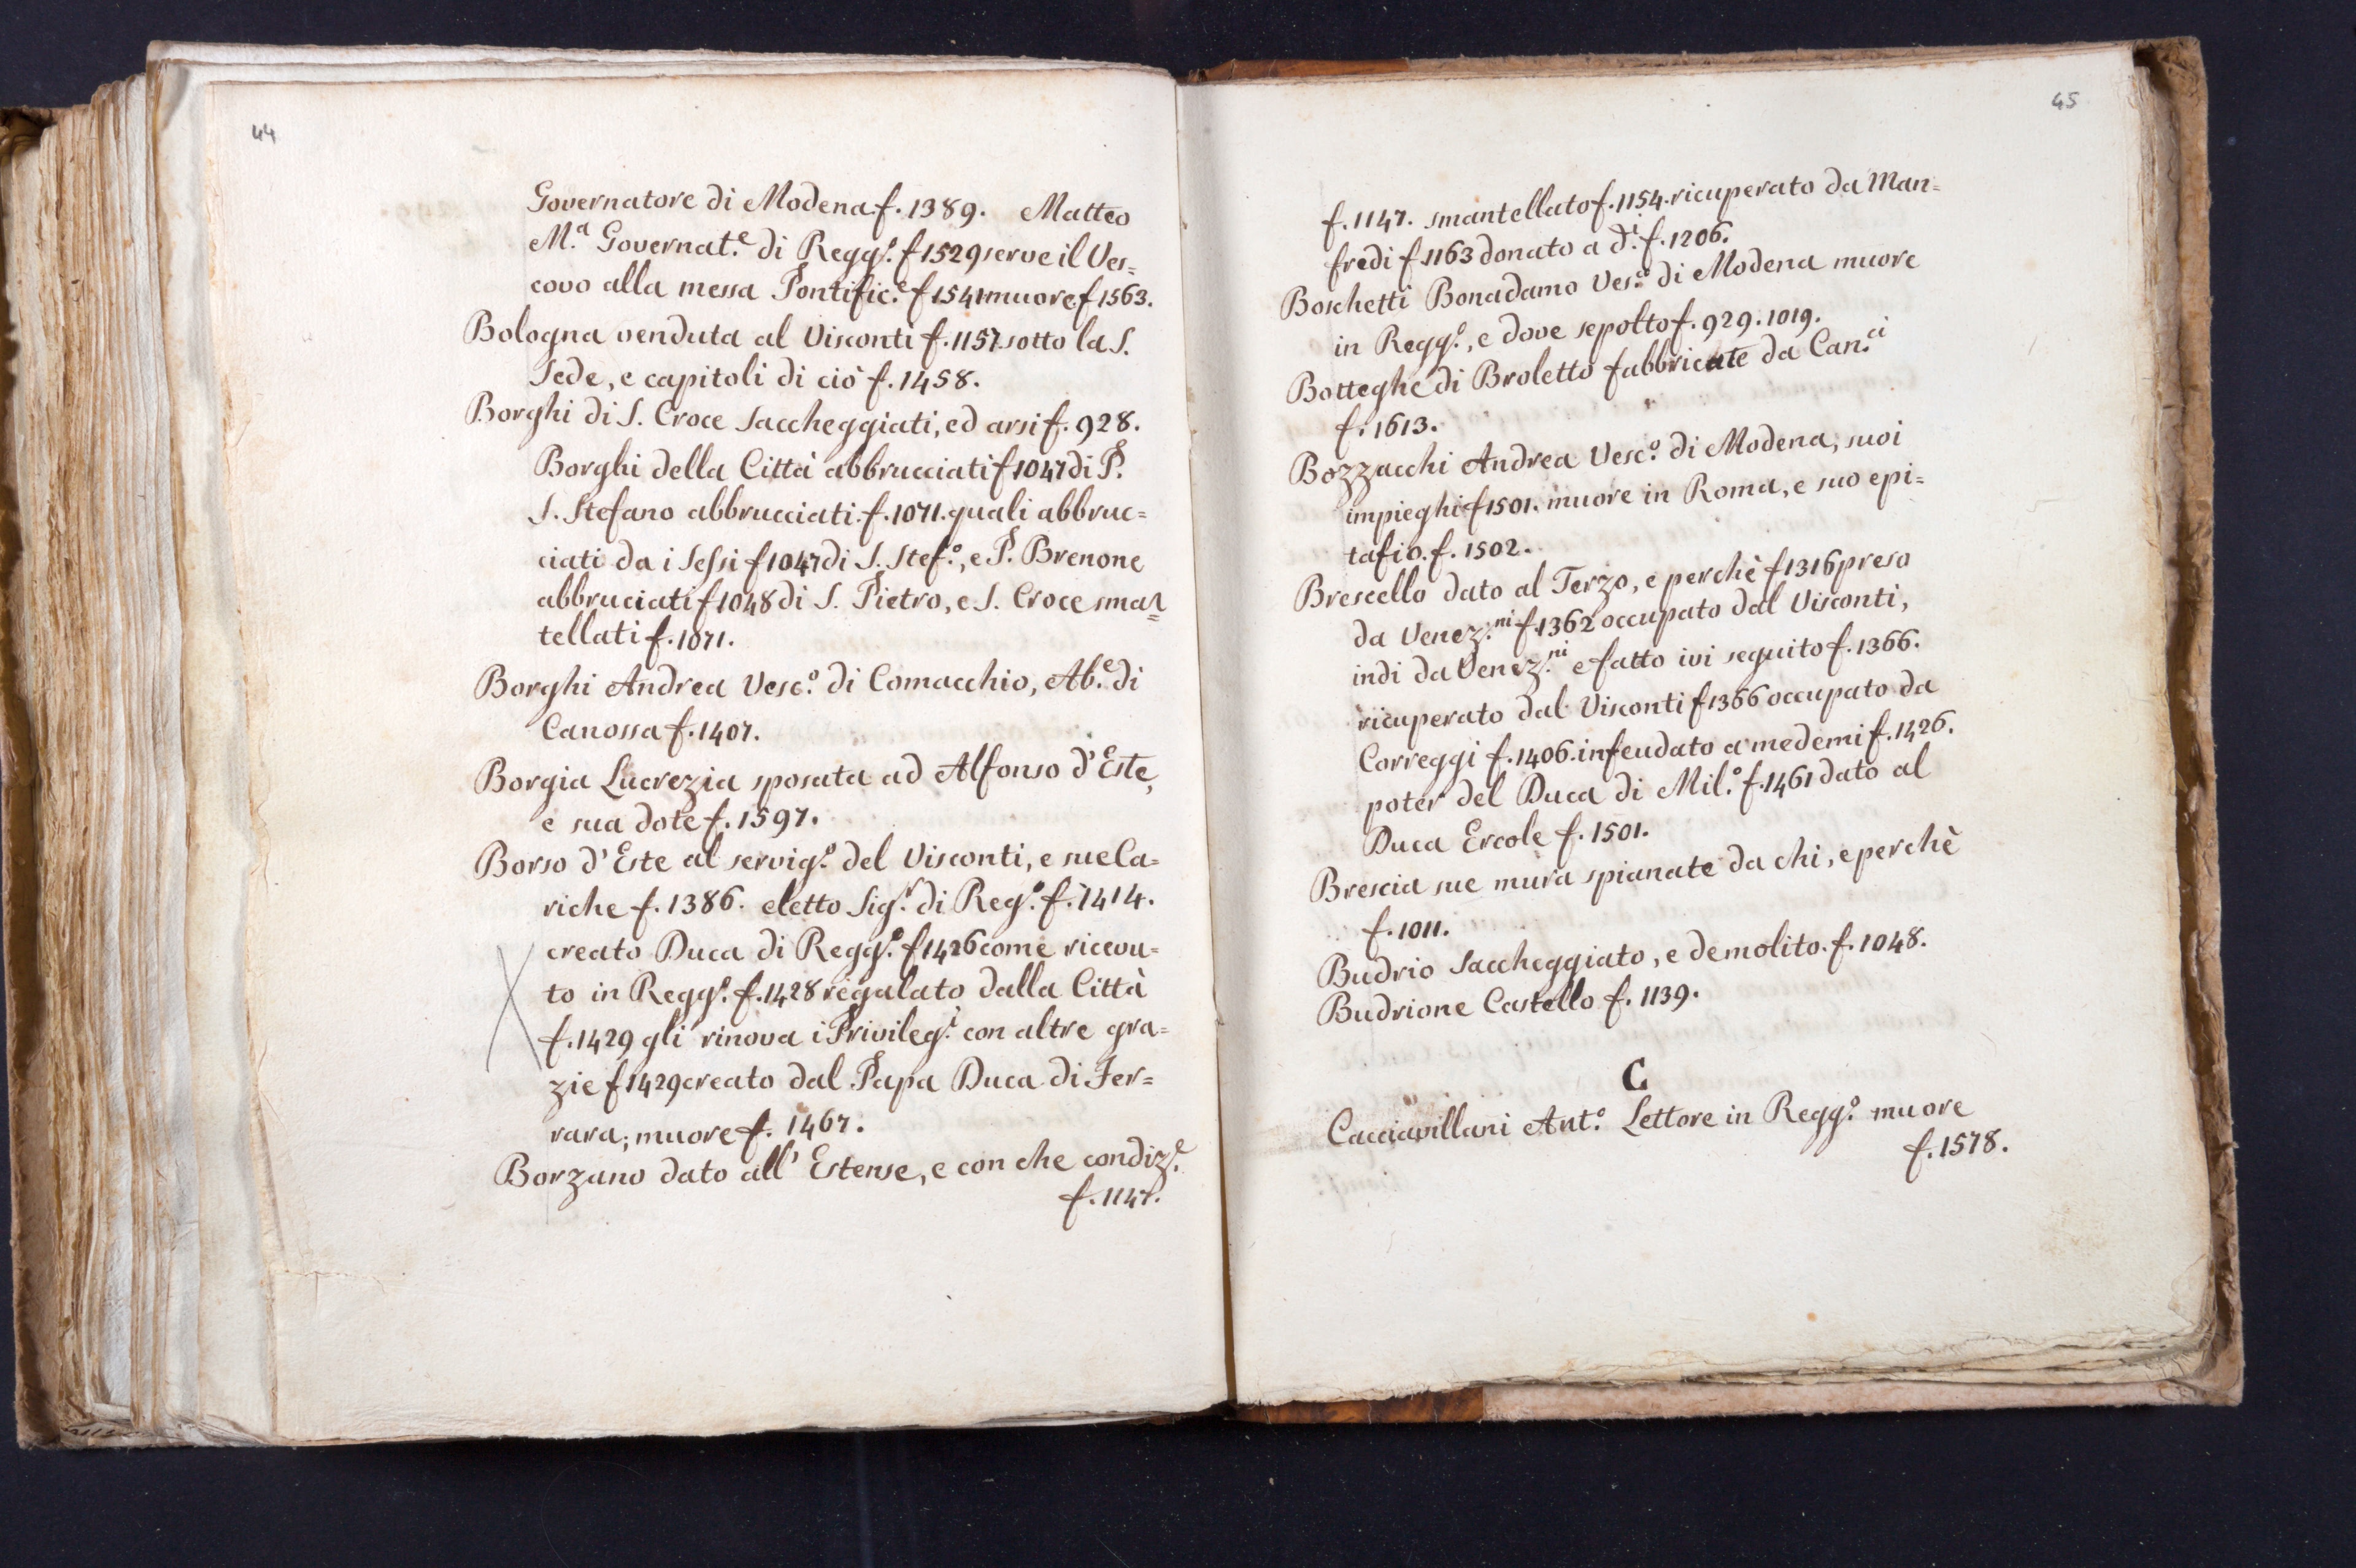 44
Governatore di Modena f. 1389. Matteo
M.a Governat.e di Regg.o f 1529 serve il Ves=
covo alla messa Pontific.e f 1541 muore f 1563.
Bologna venduta al Visconti f. 1157 sotto la S.
Sede, e capitoli di ciò f. 1458.
Borghi di S. Croce saccheggiati, ed arsi f. 928.
Borghi della Città abbrucciati f 1047 di P.
S. Stefano abbrucciati f. 1071. quali abbruc=
ciati da i Sessi f 1047 di S. Stef.o, e P. Brenone
abbruciati f 1048 di S. Pietro, e S. Croce sman=
tellati f. 1071.
Borghi Andrea Vesc.o di Comacchio, Ab.e di
Canossa f. 1407.
Borgia Lucrezia sposata ad Alfonso d'Este,
e sua dote f. 1597.
Borso d'Este al servig.o del Visconti, e sue Ca=
riche f. 1386. eletto Sig.r di Reg.o f. 1414.
creato Duca di Regg.o f 1426 come ricevu=
to in Regg.o f. 1428 regalato dalla Città
f. 1429 gli rinova i Privileg.i con altre gra=
zie f 1429 creato dal Papa Duca di Fer=
rara; muore f. 1467.
Borzano dato all' Estense, e con che condiz.e
f. 1147.
45
f. 1147. smantellato f. 1154. ricuperato da Man=
fredi f 1163 donato a d.i f. 1206.
Boschetti Bonadamo Ves.o di Modena muore
in Regg.o, e dove sepolto f. 929. 1019.
Botteghe di Broletto fabbricate da Can.ci
f. 1613.
Bozzacchi Andrea Vesc.o di Modena, suoi
impieghi f 1501. muore in Roma, e suo epi=
tafio. f. 1502.
Brescello dato al Terzo, e perchè f 1316 preso
da Venez.ni f. 1362 occupato dal Visconti,
indi da Venez.ni e fatto ivi seguito f. 1366.
ricuperato dal Visconti f 1366 occupato da
Correggi f. 1406. infeudato a medemi f. 1426.
poter del Duca di Mil.o f. 1461 dato al
Duca Ercole f. 1501.
Brescia sue mura spianate da chi, e perchè
f. 1011.
Budrio saccheggiato, e demolito. f. 1048.
Budrione Castello f. 1139.
C
Cacciavillani Ant.o Lettore in Regg.o muore
f. 1578.